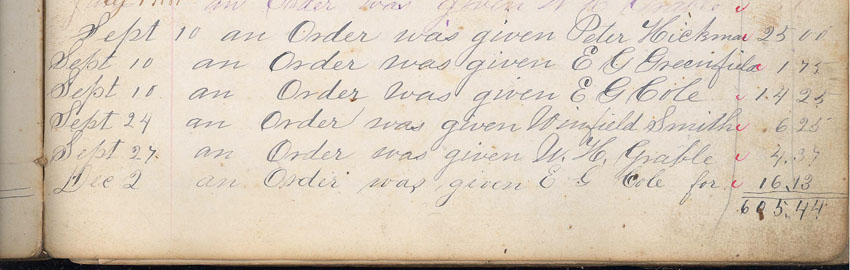 an Order was given W H Grable
Sept 10 an Order was given Peter Hickman 25 00
Sept 10 an Order was given E G Greenfield 1 75
Sept 10 an Order was given E G Cole 14 25
Sept 24 an Order was given Winfield Smith 6 25
Sept 27 an Order was given W. H. Grable 4.37
Dec 2 an Order was given E G Cole for 16.13
605.44